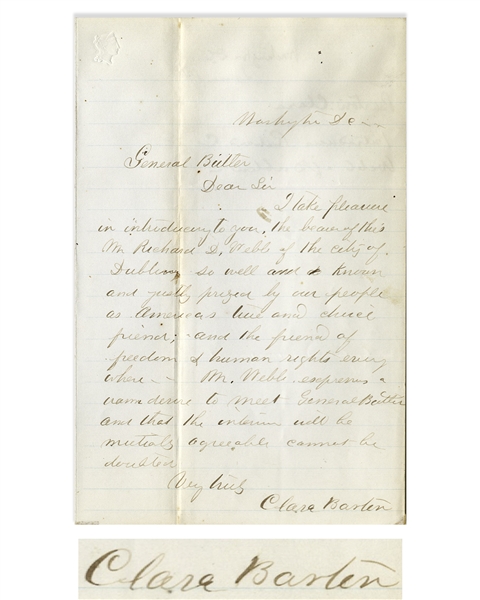 Washington D.C.
General Butler
Dear Sir
I take pleasure
in introducing to you, the bearer of this
Mr Richard D. Webb of the city of
Dublin, so well and known
and justly prized by our people
as America's true and choice
friend; and the friend of
freedom & human rights every
where — Mr. Webb expresses a
warm desire to meet General Butler
and that the interview will be
mutually agreeable cannot be
doubted
Very truly
Clara Barton
Clara Barton